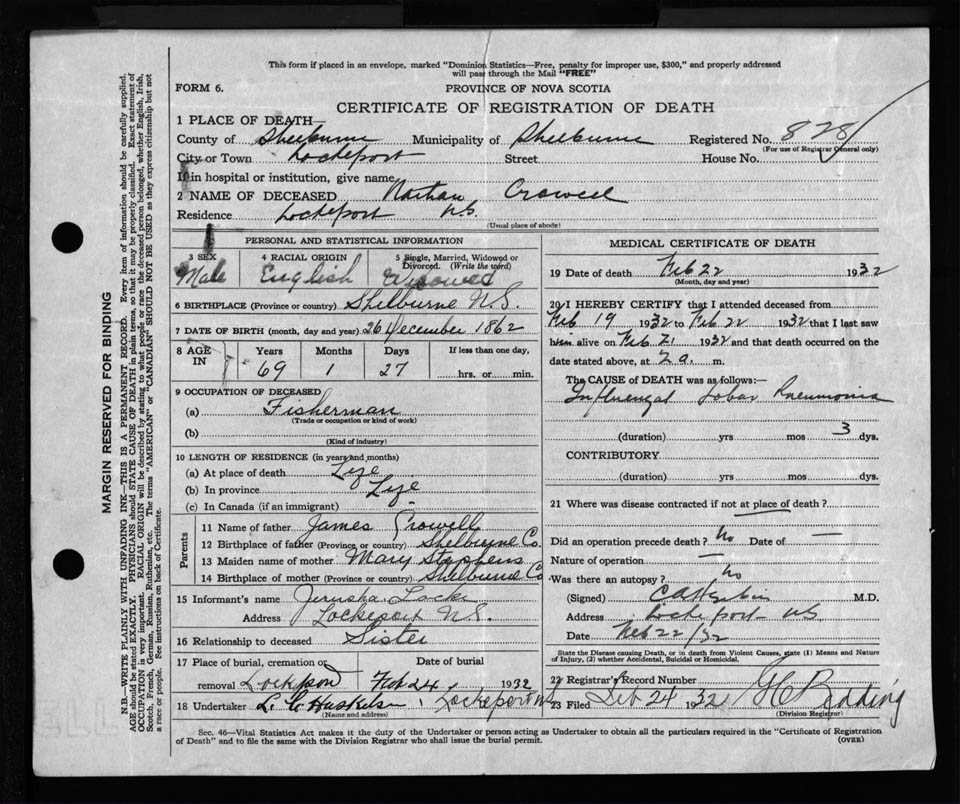 This form if placed in an envelope, marked "Dominion Statistics—Free, penalty for improper use, $300," and properly addressed
will pass through the Mail "FREE"
FORM 6.
PROVINCE OF NOVA SCOTIA
CERTIFICATE OF REGISTRATION OF DEATH
1 PLACE OF DEATH—
County of Shelburne Municipality of Shelburne Registered No. 828
(For use of Registrar General only)
City or Town Lockeport Street House No.
If in hospital or institution, give name
2 NAME OF DECEASED Nathan Crowell
Residence Lockeport N.S.
(Usual place of abode)
PERSONAL AND STATISTICAL INFORMATION
3 SEX 4 RACIAL ORIGIN 5 Single, Married, Widowed or
Divorced. (Write the word)
Male English Widowed
6 BIRTHPLACE (Province or country) Shelburne N.S.
7 DATE OF BIRTH (month, day and year) 26 December 1862
8 AGE IN Years Months Days If less than one day,
69 1 27 hrs. or min.
9 OCCUPATION OF DECEASED
(a) Fisherman
(Trade or occupation or kind of work)
(b)
(Kind of industry)
10 LENGTH OF RESIDENCE (in years and months)
(a) At place of death Life
(b) In province Life
(c) In Canada (if an immigrant)
Parents
11 Name of father James Crowell
12 Birthplace of father (Province or country) Shelburne Co.
13 Maiden name of mother Mary Stephens
14 Birthplace of mother (Province or country) Shelburne Co
15 Informant's name Jerusha Locke
Address Lockeport N.S.
16 Relationship to deceased Sister
17 Place of burial, cremation or Date of burial
removal Lockeport Feb 24 1932
18 Undertaker L. Huskilson, Lockeport NS
(Name and address)
MEDICAL CERTIFICATE OF DEATH
19 Date of death Feb 22 1932
(Month, day and year)
20 I HEREBY CERTIFY that I attended deceased from
Feb 19 1932 to Feb 22 1932 that I last saw
him alive on Feb 21 1932 and that death occurred on the
date stated above, at 2 a. m.
The CAUSE of DEATH was as follows:—
Influenzal Lobar Pneumonia
(duration) yrs mos 3 dys.
CONTRIBUTORY
(duration) yrs mos dys.
21 Where was disease contracted if not at place of death? —
Did an operation precede death? No Date of —
Nature of operation —
Was there an autopsy? No
(Signed) M.D.
Address Lockeport NS
Date Feb 22/32
State the Disease causing Death, or in death from Violent Causes, state (1) Means and Nature
of Injury, (2) whether Accidental, Suicidal or Homicidal.
22 Registrar's Record Number
23 Filed Feb 24 1932
(Division Registrar)
Sec. 46—Vital Statistics Act makes it the duty of the Undertaker or person acting as Undertaker to obtain all the particulars required in the "Certificate of Registration
of Death" and to file the same with the Division Registrar who shall issue the burial permit. (OVER)
MARGIN RESERVED FOR BINDING
N.B.—WRITE PLAINLY WITH UNFADING INK—THIS IS A PERMANENT RECORD. Every item of information should be carefully supplied.
AGE should be stated EXACTLY. PHYSICIANS should STATE CAUSE OF DEATH in plain terms, so that it may be properly classified. Exact statement of
OCCUPATION is very important. RACIAL ORIGIN will be described by stating to what people or race the deceased person belonged, whether English, Irish,
Scotch, French, German, Russian, Ruthenian, etc. The terms "AMERICAN" or "CANADIAN" SHOULD NOT BE USED as they express citizenship but not
a race or people. See instructions on back of Certificate.